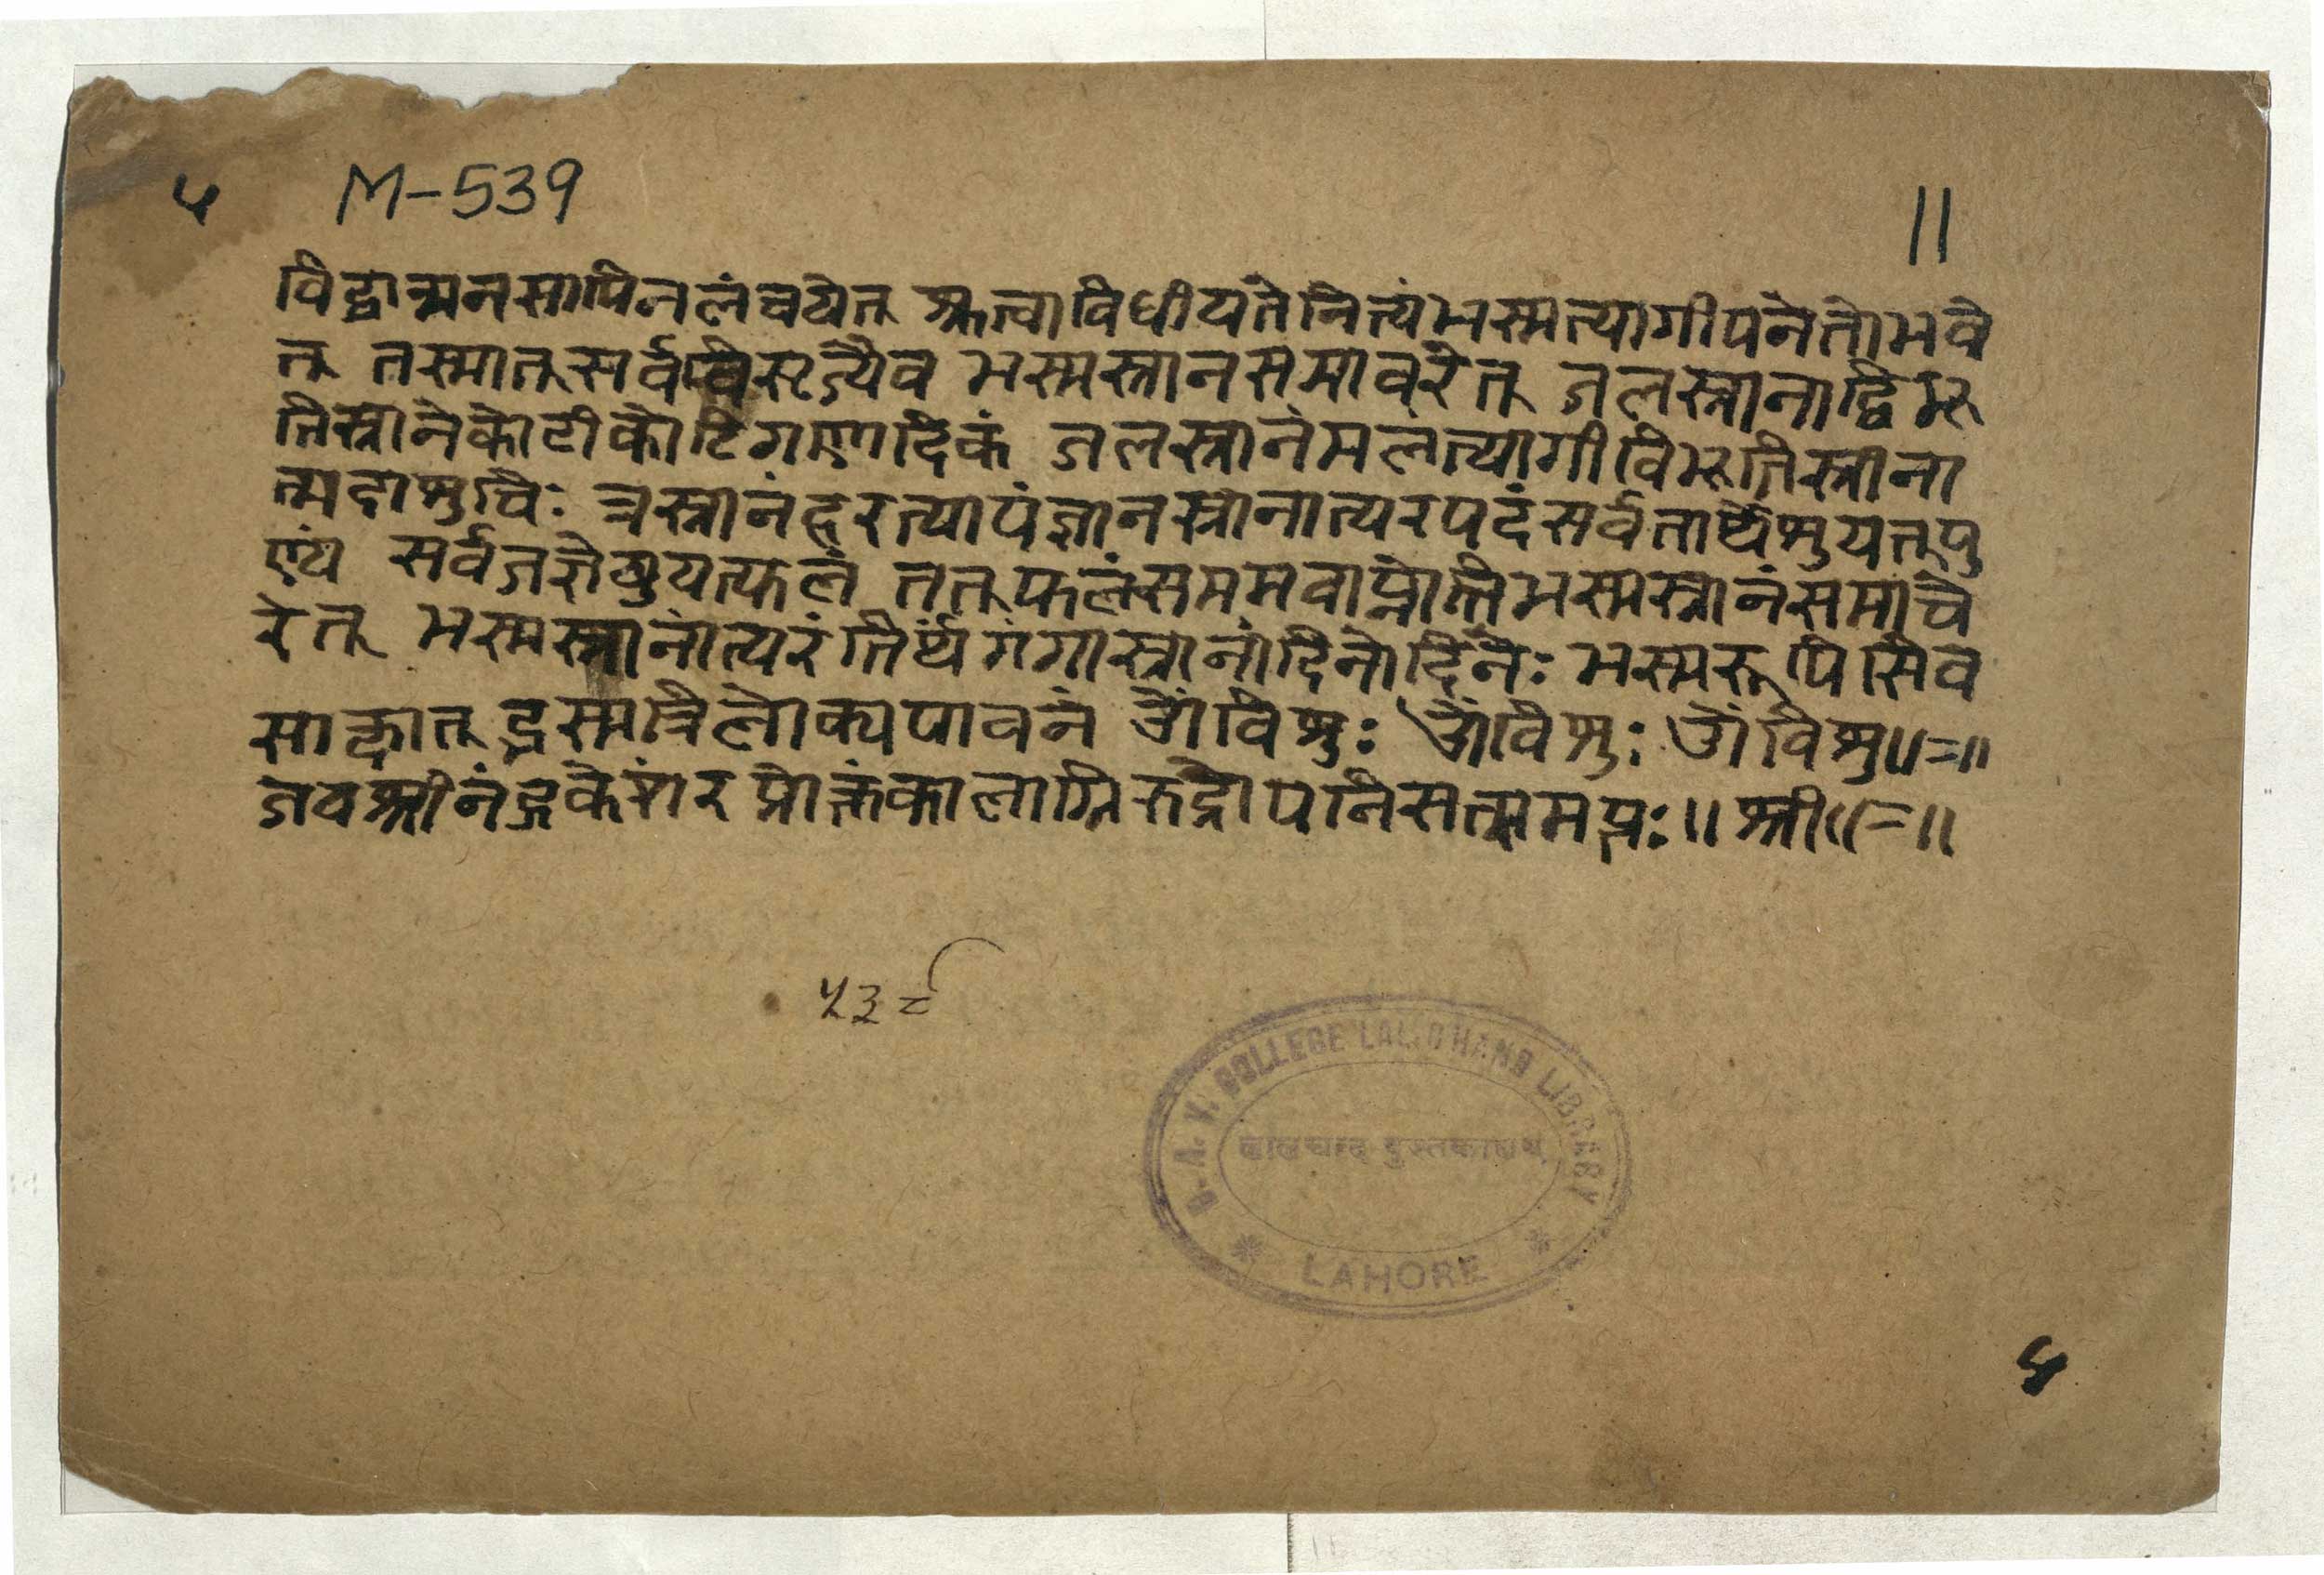 ५ M-539 11
विद्वान्मनसापिनलंचयेत् श्रुत्वाविधीयतेनित्यंभस्मत्यागीपनेतोभवे
त् तस्मात्सर्वविसृज्यैव भस्मस्नानसमाचरेत् जलस्नानाद्विभू
तिस्नानेकोटीकोटिगणादिकं जलस्नानंमलंत्यागीविभूतिस्नाना
त्मदाशुचिः स्नानंहरत्यापंज्ञानस्नानात्परपदंसर्वतार्थेषुयत्पु
ण्यं सर्वजज्ञेषुयत्फलं तत्फलंसममवाप्नोतिभस्मस्नानंसमाचे
रेत् भस्मस्नानांत्परंतिर्थंगंगास्नानांदिनेदिने: भस्मरूपिसिव
साक्षात् द्भस्मत्रिलोक्यपावनं ओंविष्नुः ओंविष्नुः ओंविष्नु॥=॥
श्रीनंद प्रोक्तंकालाग्निरुद्रोपनिसत्समप्तः॥ श्री॥=॥
५३९
D. A. V. COLLEGE LALCHAND LIBRARY
लालचन्द पुस्तकालय
* LAHORE *
५